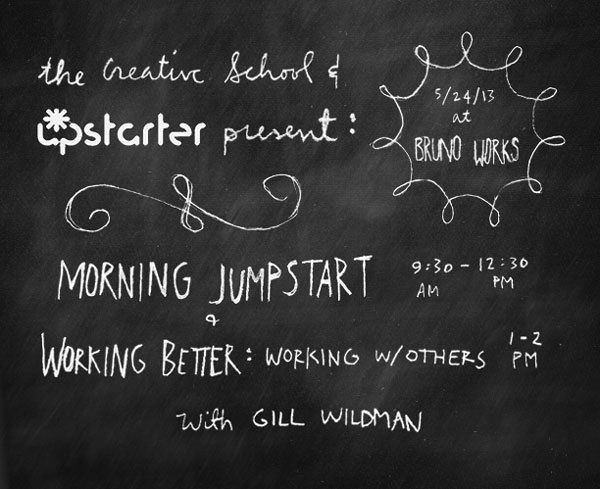 the Creative School &
upstarter present:
5/24/13
at
BRUNO WORKS
MORNING JUMPSTART 9:30 - 12:30
AM PM
&
WORKING BETTER: WORKING W/OTHERS 1-2
PM
With GILL WILDMAN